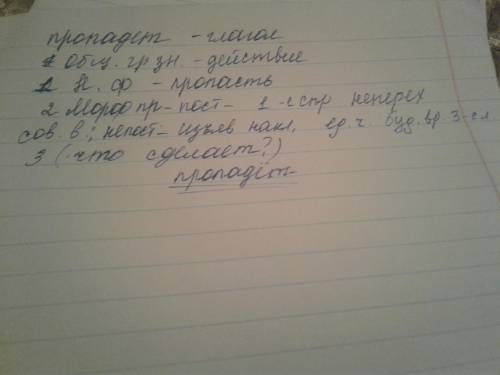 пропадет - глагол
1 Общ. гр зн. - действие
1 Н. ф - пропасть
2 Морф пр - пост - 1-е спр неперех
сов в; непост - изъяв накл, ед. ч. буд. вр. 3-е л
3 (что сделает?)
пропадёт